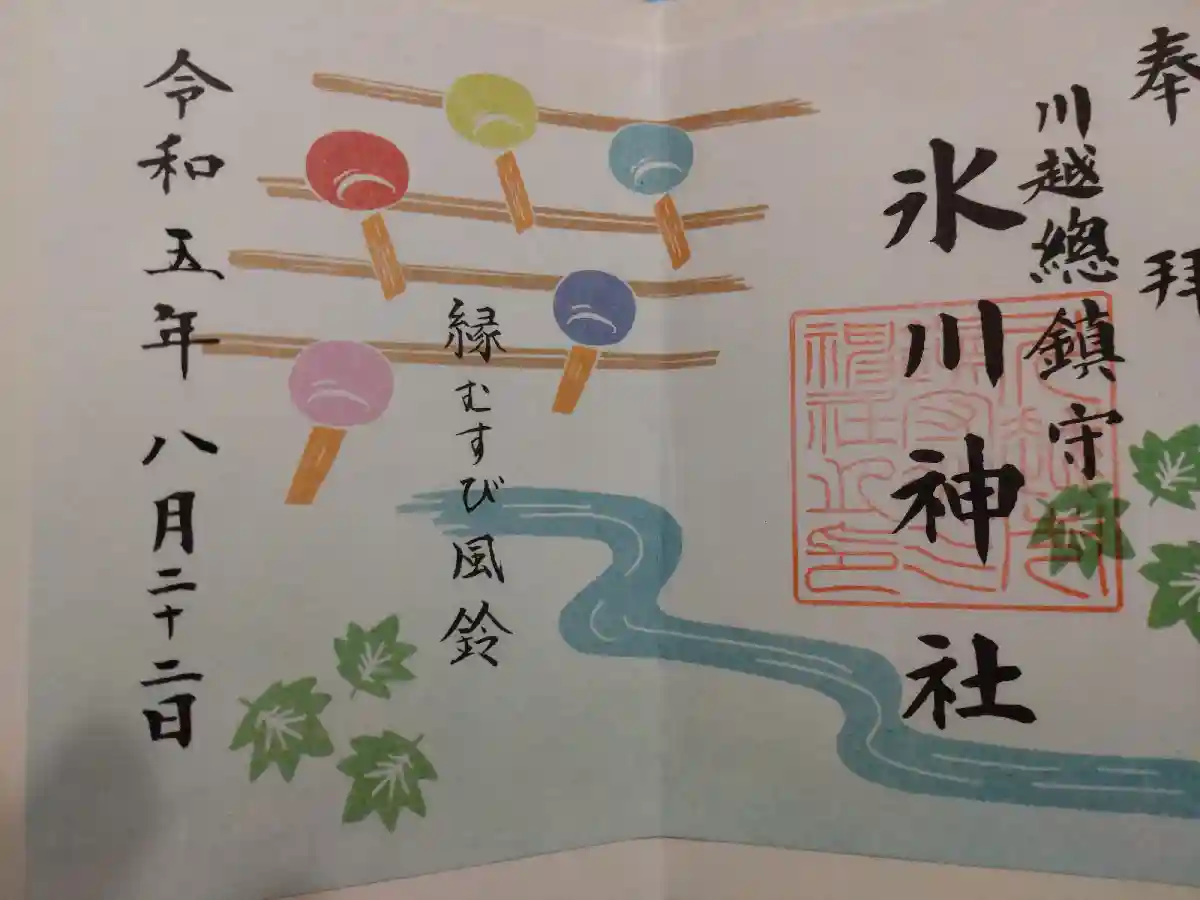 奉拜
川越總鎮守
氷川神社
縁むすび風鈴
令和五年八月二十二日